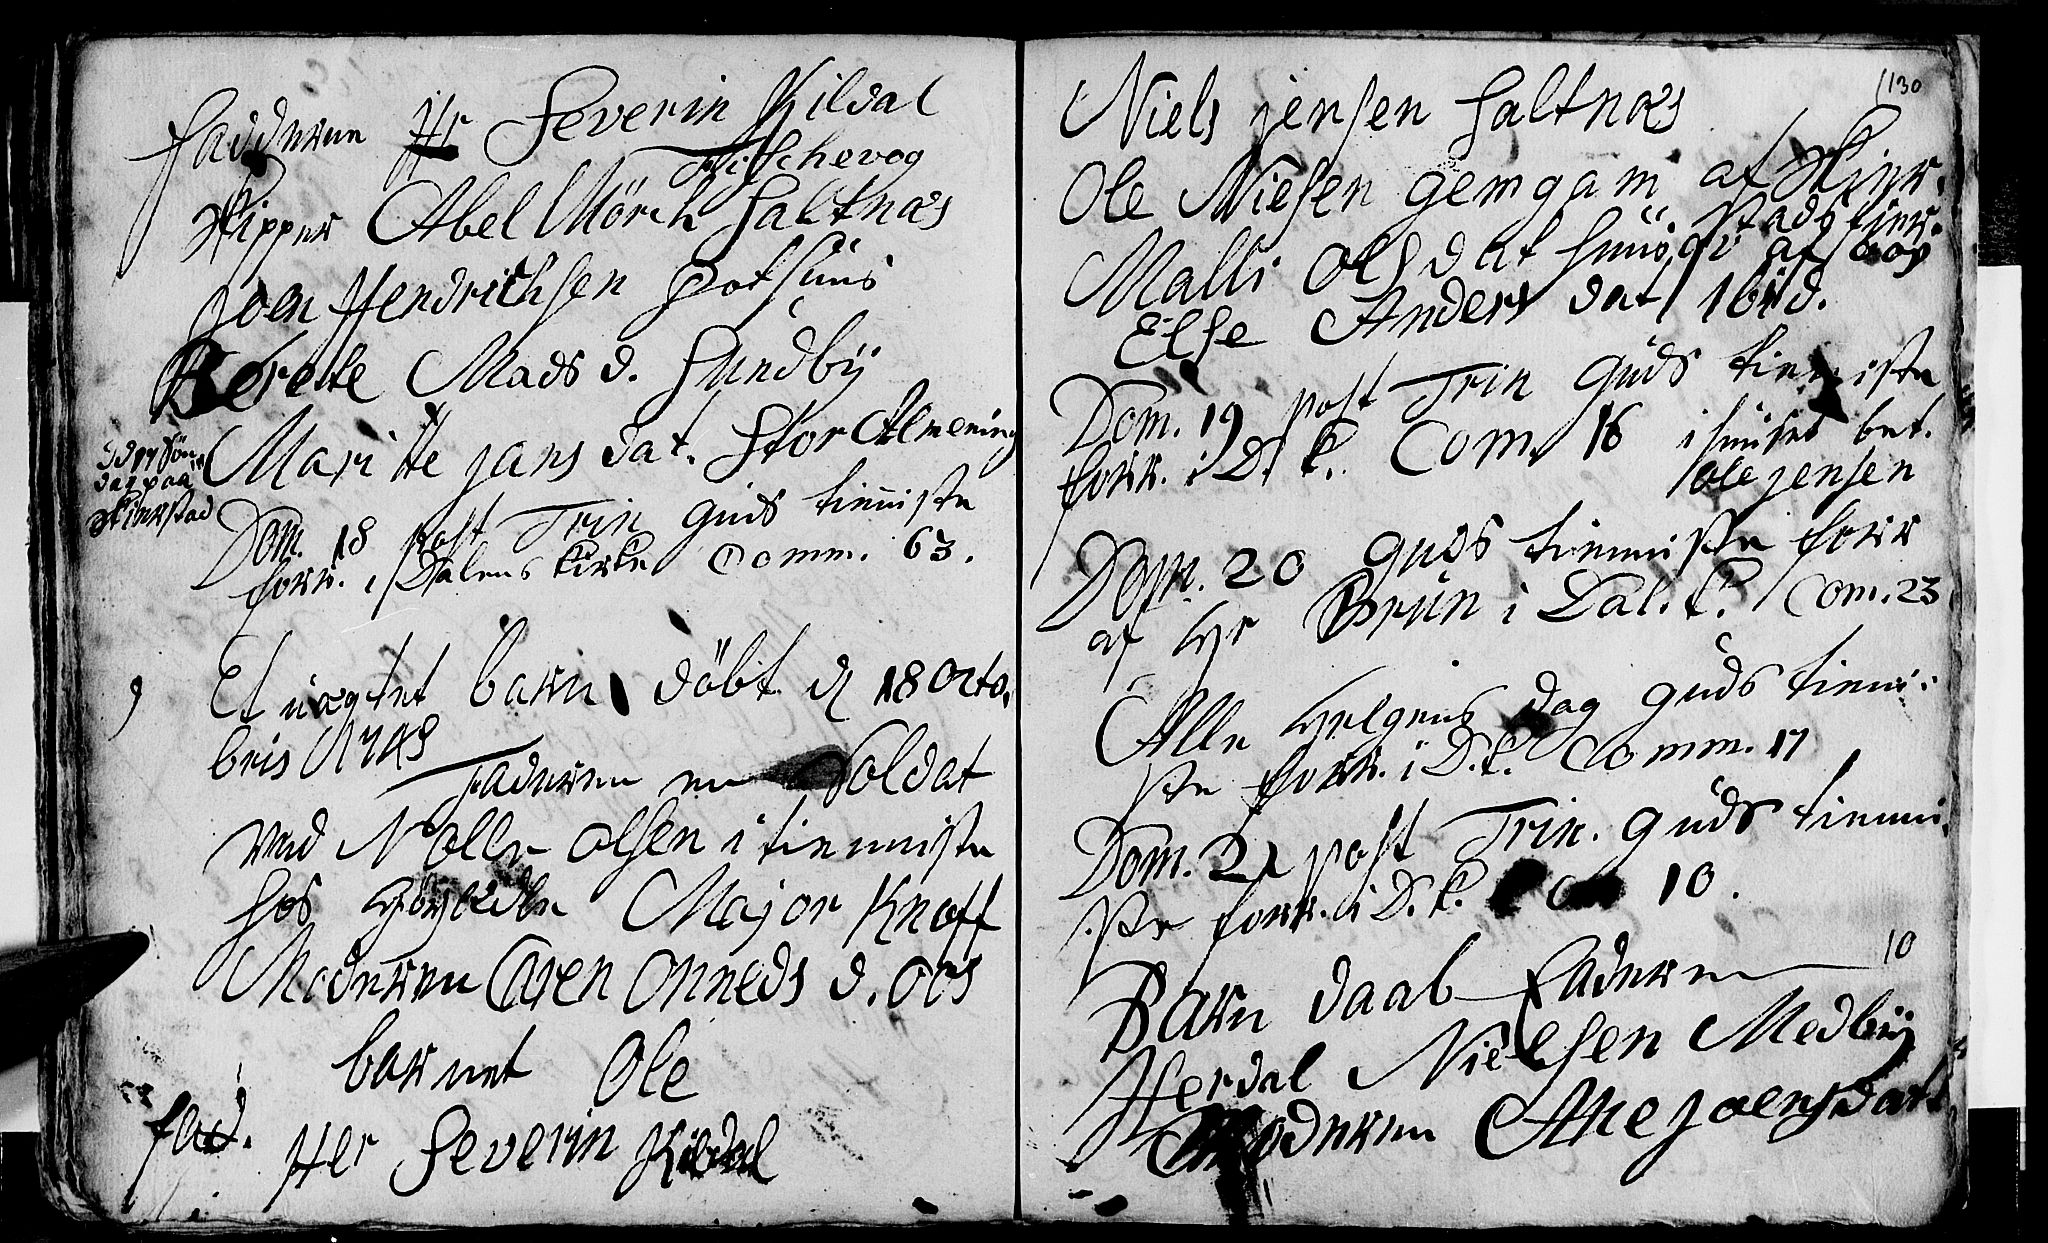 fadderne Hr Severin Kildal
Fischevog
Skipper Abel Mörch Saltnæs
Joen Hendrichsen
Berette Mads d. Sundbÿ
Maritte jans dat. Stor Almening
Dom. 18 post Trin guds tienniste
forr. i Dalens kirke Comm. 63.
9 Et uægtet barn döbt d 18 Octo.
bris
Faderen en Soldat
ved Nolle Olsen i tienniste
hos Major Knoff
Moderen Caren d. Oos
barnet Ole
fad. Her Severin Kildal
130
Niels jensen Saltnæs
Ole Nielsen gemgam af
Malli Ols dat
Else Anders dat ibid.
Dom. 19 post Trin Guds tienniste
forr. i D. k. Com. 16 i huuset bet.
Ole jensen
Dom. 20 guds tienniste forr
af Hr Brun i Dal. k. Com. 23
Alle Helgens dag guds tienni-
ste forr. i D. k. Comm. 17
Dom. 21 post Trin. guds tienni.
ste forr. i D. k. 10.
10
Barn daab Faderen
Herdal Nielsen Medbÿ
Moderen Ane joensdatt